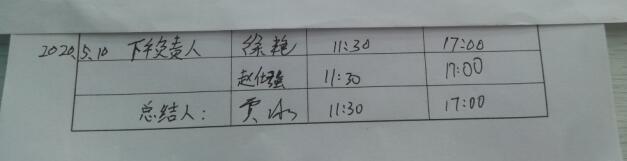 2020.5.10 下午负责人 徐艳 11:30 17:00
赵仕强 11:30 17:00
总结人: 贾冰 11:30 17:00